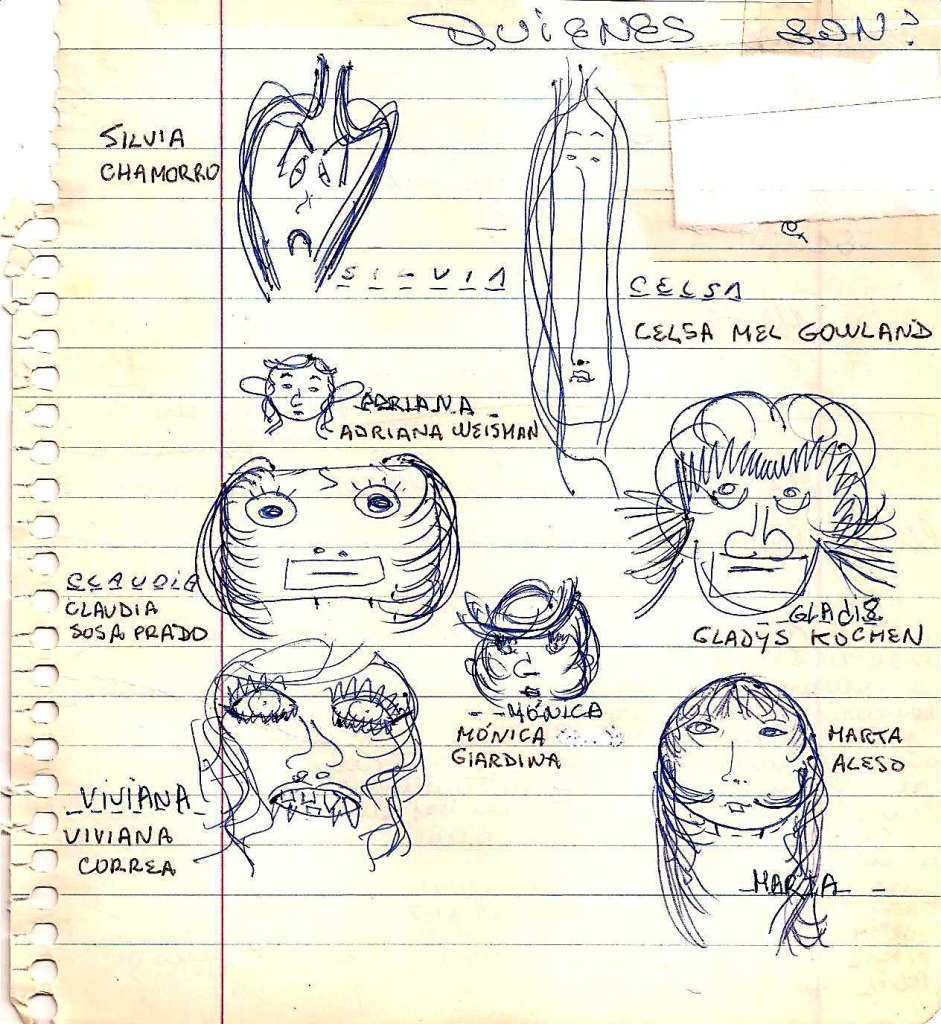 QUIENES SON?
SILVIA
CHAMORRO
SILVIA
CELSA
CELSA MEL GOWLAND
ADRIANA
ADRIANA WEISMAN
CLAUDIA
CLAUDIA
SOSA PRADO
GLADIS
GLADYS KOCHEN
MÓNICA
MÓNICA
GIARDINA
VIVIANA
VIVIANA
CORREA
MARTA
ALESO
MARTA